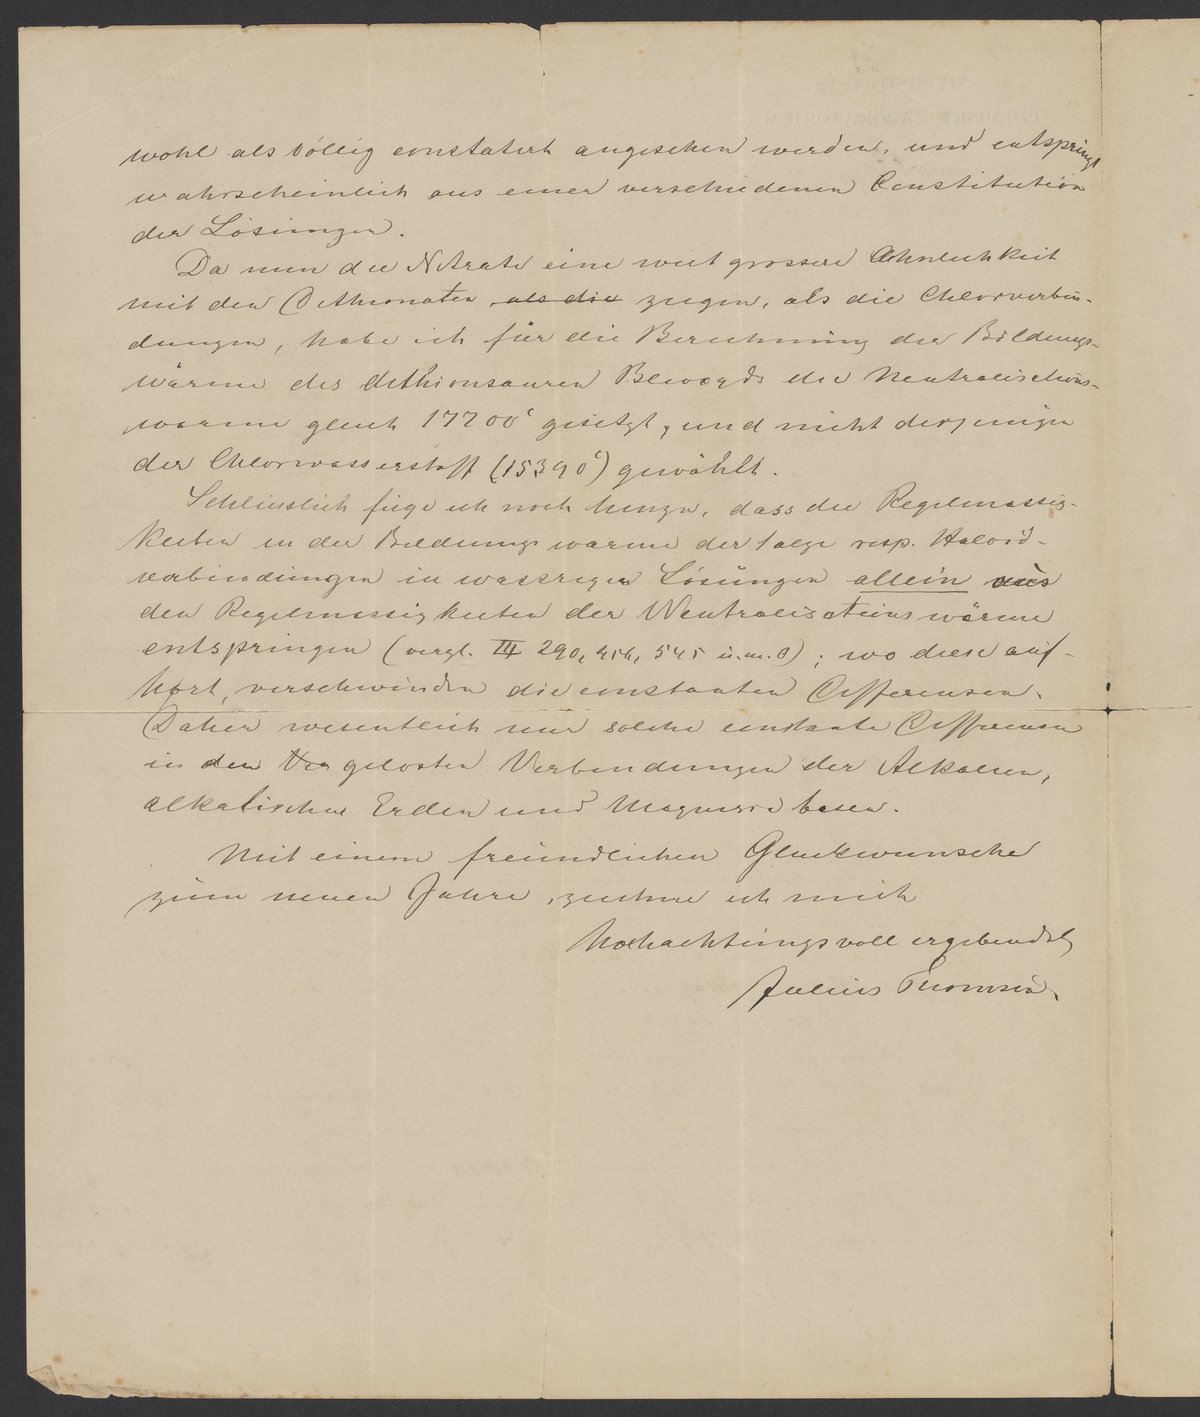 wohl als völlig constatirt angesehen werden, und entspringt
wahrscheinlich aus einer verschiedenen Constitution
der Lösungen.
Da nun die Nitrate eine weit grossere Ähnlichkeit
mit den Dithionaten als die zeigen, als die Chlorverbin-
dungen, habe ich für die Berechnung der Bildungs-
wärme des dithionsauren Bleioxyds die Neutralisations-
wärme gleich 17700c gesetzt, und nicht derjenigen
der Chlorwasserstoff (15390c) gewählt.
Schliesslich füge ich noch hinzu, dass die Regelmassig-
keiten in der Bildungswärme der Salze resp. Haloid-
verbindungen in wassrigen Lösungen allein aus
den Regelmässigkeiten der Neutralisationswärme
entspringen (vergl. III 290, 456, 545 u. m. O); wo diese auf-
hört, verschwinden die constanten Differensen.
Daher wesentlich nur solche constante Differensen
in den gelosten Verbindungen der Alkalien,
alkalischen Erden und Magnesia basen.
Mit einem freundlichen Gluckwunsche
zum neuen Jahre, zeichne ich mich
Hochachtungsvoll ergebendst
Julius Thomsen.